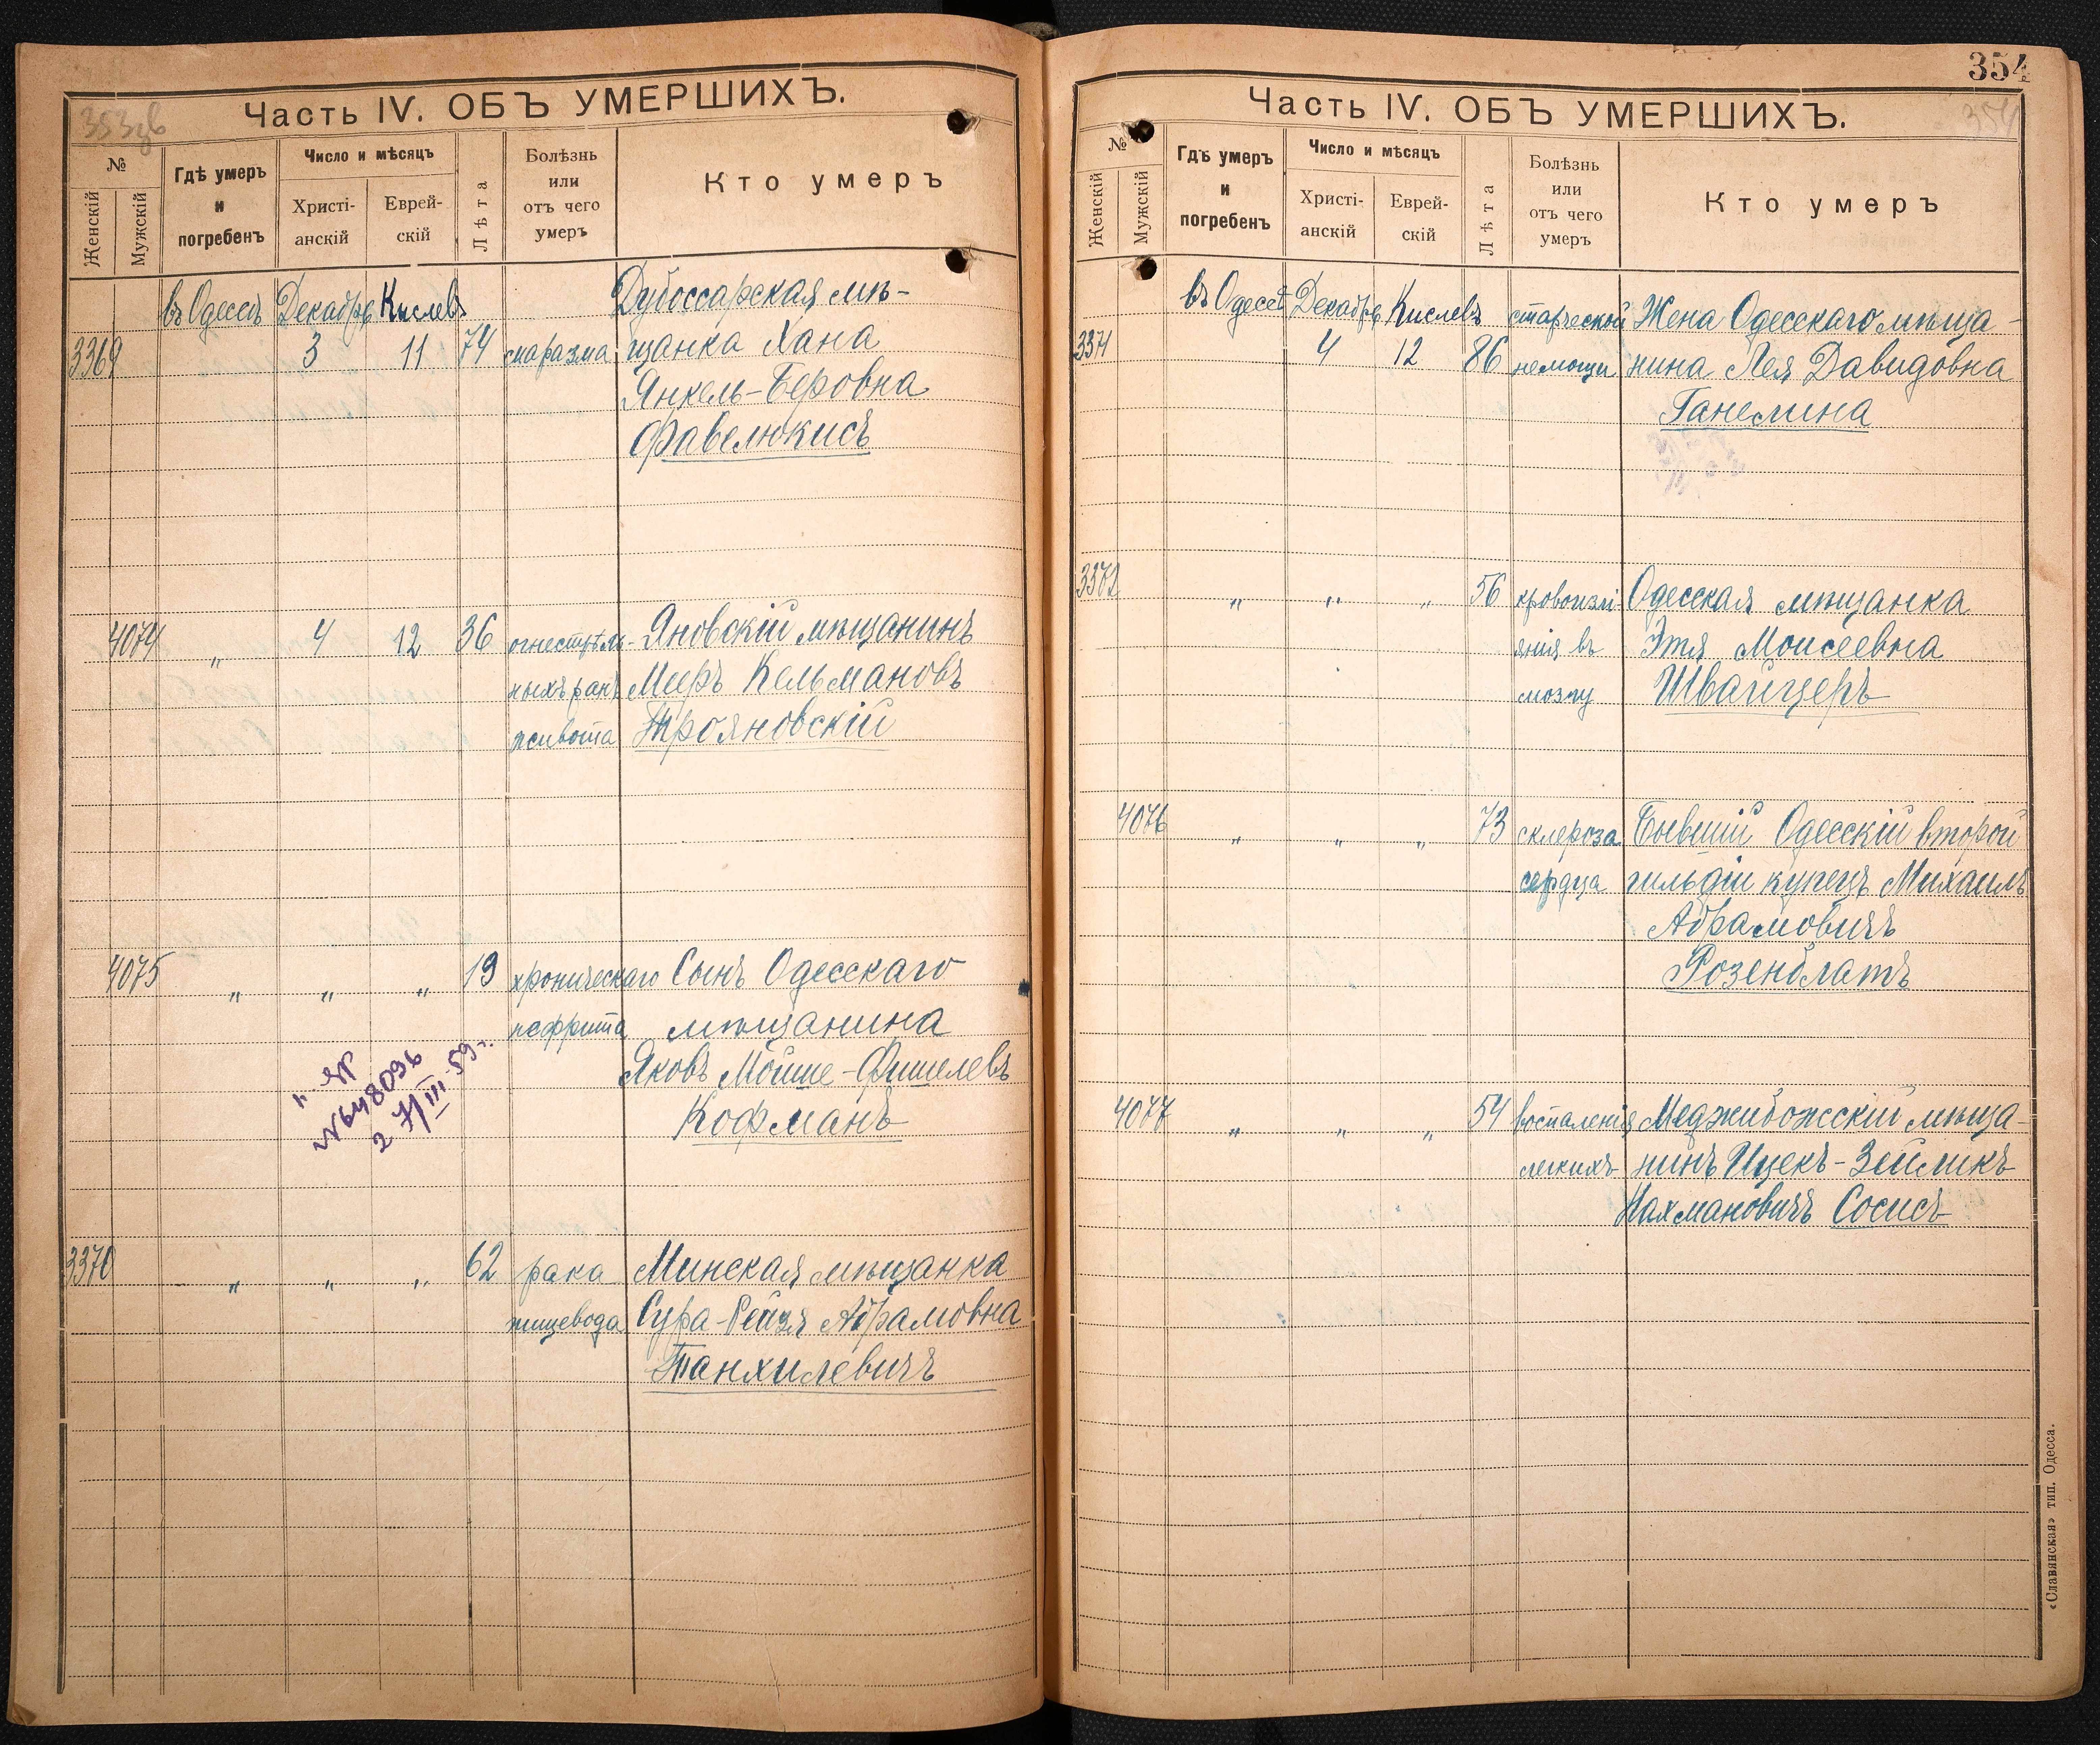 353об
Часть IV. ОБЪ УМЕРШИХЪ.
№
Женскій
Мужскій
Гдѣ умеръ
и
погребенъ
Число и мѣсяцъ
Христі-
анскій
Еврей-
скій
Лѣта
Болѣзнь
или
отъ чего
умеръ
Кто умеръ
въ Одессѣ Декабрь Кислевъ Дубоссарская мѣ-
3369 3 11 74 маразма щанка Хана
Янкель-Беровна
Фавелюкисъ
4074 „ 4 12 36 огнестрѣль- Яновскій мѣщанинъ
ныхъ ранъ Мееръ Кельмановъ
живота Трояновскій
4075 „ „ „ 19 хроническаго Сынъ Одесскаго
нефрита мѣщанина
Яковъ Мойше-Фишелевъ
Кофманъ
№648096
2 7/III 59 г.
3370 „ „ „ 62 рака Минская мѣщанка
пищевода Сура-Рейзя Абрамовна
Танхилевичъ
354
354
Часть IV. ОБЪ УМЕРШИХЪ.
№
Женскій
Мужскій
Гдѣ умеръ
и
погребенъ
Число и мѣсяцъ
Христі-
анскій
Еврей-
скій
Лѣта
Болѣзнь
или
отъ чего
умеръ
Кто умеръ
въ Одессѣ Декабрь Кислевъ старческой Жена Одесскаго мѣща-
3371 4 12 86 немощи нина Лея Давидовна
Ганелина
3372 „ „ „ 56 кровоизлі- Одесская мѣщанка
янія въ Этя Моисеевна
мозгу Швайцеръ
4076 „ „ „ 73 склероза Бывшій Одесскій второй
сердца гильдіи купецъ Михаилъ
Абрамовичъ
Розенблатъ
4077 „ „ „ 54 воспаленія Меджибожскій мѣща-
легкихъ нинъ Ицекъ-Зейликъ
Нахмановичъ Сосисъ
«Славянская» тип. Одесса.